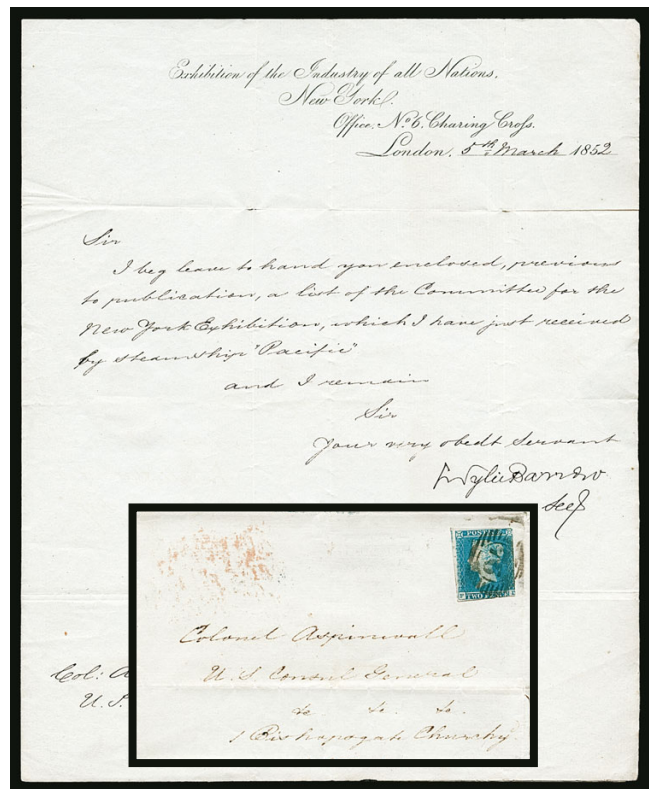 Exhibition of the Industry of all Nations,
New York.
Office, No. 6, Charing Cross.
London, 5th March 1852
Sir
I beg leave to hand you enclosed, previous
to publication, a list of the Committee for the
New York Exhibition, which I have just received
by steamship "Pacific"
and I remain
Sir
Your very obedt servant
Wylie Barrow
Secy
Col: A
U.S.
POSTAGE
TWO
Colonel Aspinwall
U.S. Consul General
&c &c. &c.
1 Bishopsgate Churchy